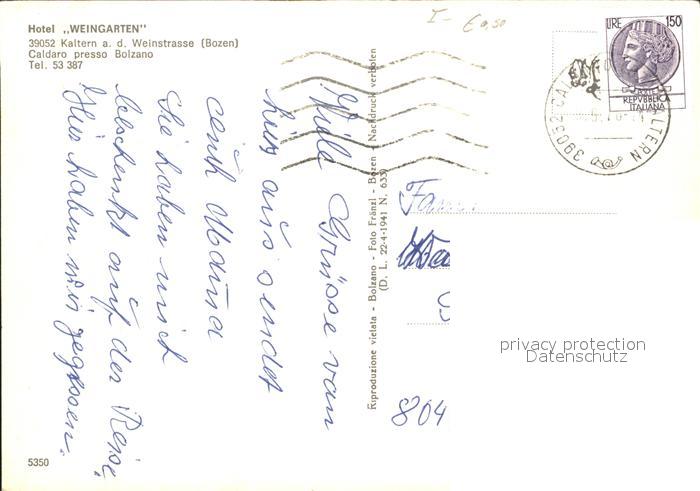 Hotel „WEINGARTEN"
39052 Kaltern a. d. Weinstrasse (Bozen)
Caldaro presso Bolzano
Tel. 53 387
I- € 0,50
LIRE 150
REPVBBLICA
ITALIANA
39052 CAL LTERN
Viele Grüsse von
hier aus sendet
euch Mama
Sie haben mich
beschenkt auf der Reise,
Hier haben wir gegessen.
Riproduzione vietata - Bolzano - Foto Fränzl - Bozen - Nachdruck verboten
(D. L. 22-4-1941 N. 633)
Fam
804
privacy protection
Datenschutz
5350